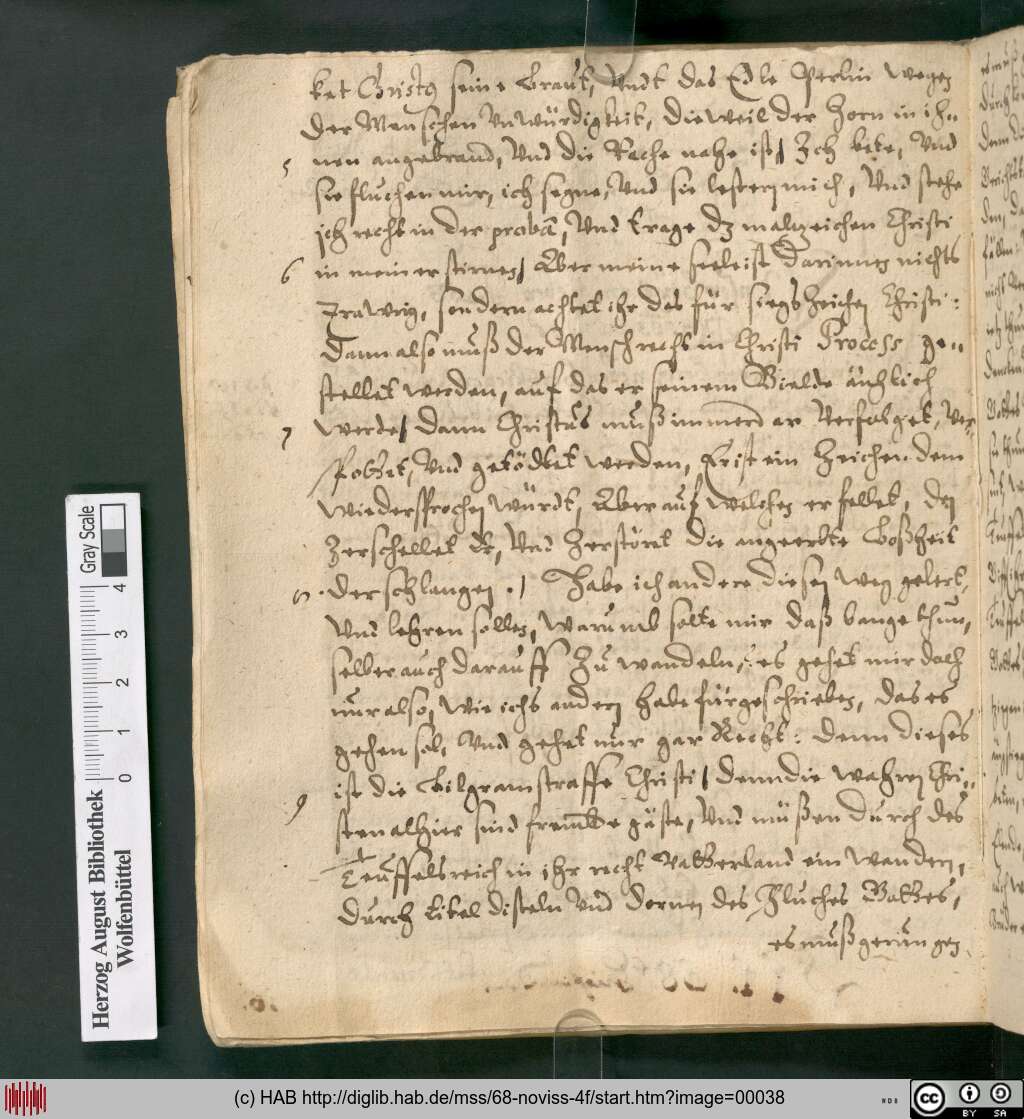 ket Christus seine Braut, Undt das Edle Perlin wegen
der Menschen Unwürdigkeit, dieweil der Zorn in ih=
5 nen angebrand, Und die Rache nahe ist / Ich bete, Und
sie fluchen mir, ich segne, Und sie lestern mich, Und stehe
jch recht in der proba, Und trage dz malzeichen Christi
6 in meiner stirnen / Aber meine seele ist darinnen nichts
Trawrig, sondern achtet ihr das für siegs Zeichen Christi:
Dann also muß der Mensch recht in Christi Process ge=
stellet werden, auf das er seinem Bielde änhlich
7 werde / Dann Christus muß immerdar Verfolget, Ver=
spottet, Und getödtet werden, Er ist ein Zeichen dem
wiedersprochen würdt, Aber auf welchen er fellet, den
Zerschellet Er, Und Zerstöret die angeerbte Boßheit
8 der schlangen. / Habe ich andere diesen weg gelert,
Und lehren sollen, warumb solte mir daß bange thun,
selber auch darauff Zu wandeln, es gehet mir doch
nur also, wie ichs andern habe fürgeschrieben, das es
gehen sol, Und gehet nur gar Recht: denn dieses
9 ist die Bilgramstrasse Christi / denn die wahren Chri=
sten alhier sind frembde gäste, Und müßen durch des
Teuffels reich in ihr recht Vatterland ein wandern,
durch eitel disteln Und dornen des Fluches Gottes,
es muß gerungen
Herzog August Bibliothek
Wolfenbüttel
Gray Scale
0 1 2 3 4
(c) HAB http://diglib.hab.de/mss/68-noviss-4f/start.htm?image=00038
cc BY SA